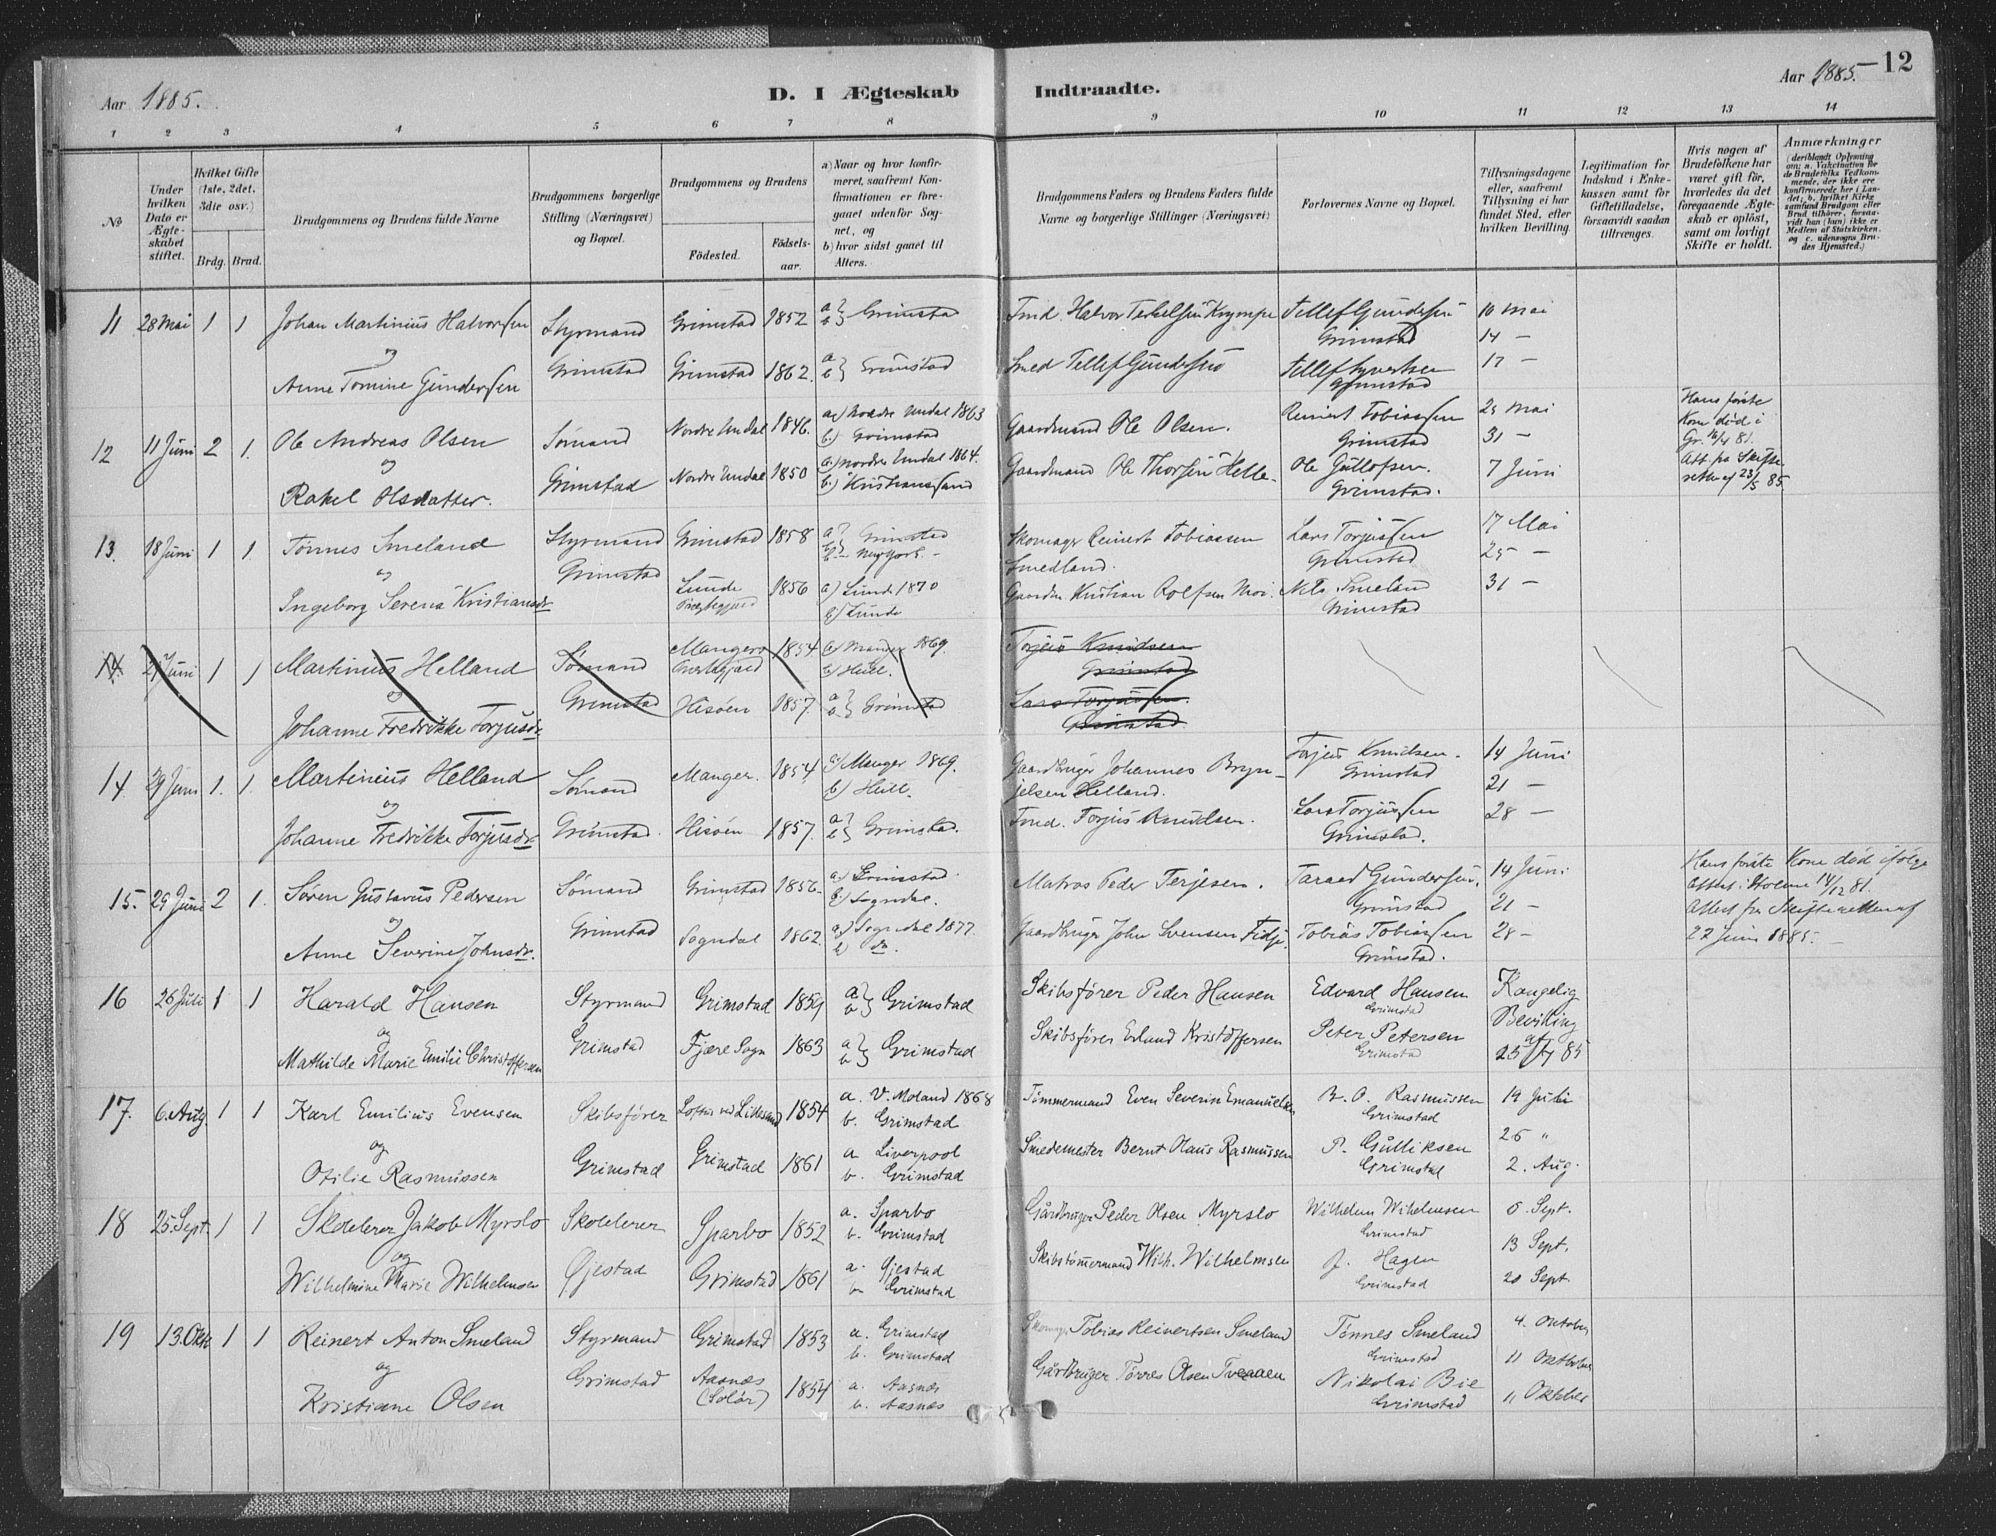 Aar 1885.
D. I Ægteskab Indtraadte.
Aar 1885. 12
1 2 3 4 5 6 7 8 9 10 11 12 13 14
№
Under hvilken Dato er Ægteskabet stiftet.
Hvilket Gifte (1ste, 2det, 3die osv.)
Brdg. Brud.
Brudgommens og Brudens fulde Navne
Brudgommens borgerlige Stilling (Næringsvei) og Bopæl.
Brudgommens og Brudens
Födested. Födsels-aar.
a) Naar og hvor konfirmeret, saafremt Konfirmationen er foregaaet udenfor Sognet, og
b) hvor sidst gaaet til Alters.
Brudgommens Faders og Brudens Faders fulde Navne og borgerlige Stillinger (Næringsvei)
Forlovernes Navne og Bopæl.
Tillysningsdagene eller, saafremt Tillysning ei har fundet Sted, efter hvilken Bevilling.
Legitimation for Indskud i Enkekassen samt for Giftetilladelse, forsaavidt saadan tiltrænges.
Hvis nogen af Brudefolkene har været gift för, hvorledes da det foregaaende Ægteskab er oplöst, samt om lovligt Skifte er holdt.
Anmærkninger
(deriblandt Oplysning om: a. Vakcination for de Brudefolks Vedkommende, der ikke ere konfirmerede her i Landet; b. hvilket Kirkesamfund Brudgom eller Brud tilhörer, forsaavidt han (hun) ikke er Medlem af Statskirken, og c. udensogns Brudes Hjemsted.)
11 28 Mai 1 1 Johan Martinius Halvorsen Styrmand Grimstad 1852 a} b} Grimstad Halvor Terkelsen Krympe Tellef Gundersen 10 Mai
og Grimstad 14 –
Anne Tomine Gundersen Grimstad Grimstad 1862. a} b} Grimstad Smed Tellef Gundersen Tellef Syvertsen 17 –
Grimstad
12 11 Juni 2 1. Ole Andreas Olsen Sømand Nordre Undal 1846. a) Nordre Undal 1863 Gaardmand Ole Olsen. Reinert Tobiassen 25 Mai Hans første
b.) Grimstad Grimstad 31 – Kone død i
og Gr. 16/4 81.
Rakel Olsdatter. Grimstad Nordre Undal 1850 a) Nordre Undal 1864. Gaardmand Ole Thorsen Helle. Ole Gullofsen. 7 Juni Att. fra Skifte-
b.) Kristianssand Grimstad. retten af 23/5 85.
13. 18 Juni 1 1. Tønnes Smeland Styrmand Grimstad 1858 a) Grimstad Skomager Reinert Tobiassen Lars Torjussen 17 Mai
og Grimstad b) New York. Smedland. Grimstad 25 –
Ingeborg Serena Kristiansdr Lunde 1856 a) Lunde 1870 Gaardm. Kristian Rolfsen Moi. Nils Smeland 31 –
Præstegjæld b) Lunde Grimstad
14 29 Juni 1 1 Martinius Helland Sømand Mangers 1854 a) Manger 1869. Torjus Knudsen
og Præstegjæld b) Hull. Grimstad
Johanne Fredrikke Torjusdr. Grimstad Hisøen 1857. a} b} Grimstad Lars Torjussen.
Grimstad.
14 29 Juni 1. 1. Martinius Helland Sømand Manger. 1854 a) Manger 1869. Gaardbruger Johannes Bryn- Torjus Knudsen. 14 Juni
og b) Hull. jelsen Helland. Grimstad 21 –
Johanne Fredrikke Torjusdr. Grimstad. Hisøen 1857. a} b} Grimstad. Torjus Knudsen. Lars Torjussen 28 –
Grimstad.
15. 29 Juni 2 1. Søren Gustavus Pedersen Sømand Grimstad 1856. a) Grimstad. Matros Peder Terjesen. Taraed Gundersen. 14 Juni Hans første Kone død ifølge
og b) Sogndal. Grimstad 21 – Attest 14/12 81.
Anne Severine Johnsdr. Grimstad Sogndal 1862. a) Sogndal 1877. Gaardbruger John Svensen Fidje. Tobias Tobiassen 28 – Attest fra Skifteretten af
b) do. Grimstad. 22 Juni 1885.
16 26 Juli 1 1 Harald Hansen Styrmand Grimstad 1859 a} b} Grimstad Skibsfører Peder Hansen Edvard Hansen Kongelig
og Grimstad Bevilling
Mathilde Marie Emilie Christoffersen Grimstad Fjære Sogn 1863 a} b} Grimstad Skibsfører Erland Kristoffersen Peter Petersen af
Grimstad 25/7 85
17. 6. Aug. 1 1 Karl Emilius Evensen Skibsfører Loftus ved Lillesand 1854 a. V. Moland 1868 Tømmermand Even Severin Emanuelsen R. O. Rasmussen 19 Juli
og b. Grimstad Grimstad 26 "
Otilie Rasmussen Grimstad Grimstad 1861 a Liverpool Smedemester Bernt Olaus Rasmussen P. Gulliksen 2. Aug.
b. Grimstad Grimstad
18 25. Sept. 1 1 Skolelærer Jakob Myrslo Skolelærer Sparbo 1852 a. Sparbo Gårdbruger Peder Olsen Myrslo Wilhelm Wilhelmsen 6 Sept.
og b. Grimstad Grimstad 13 Sept.
Wilhelmine Marie Wilhelmsen Øjestad Grimstad 1861 a. Øjestad Skibstømmermand Wilh. Wilhelmsen J. Hagen 20 Sept.
b. Grimstad Grimstad
19 13. Okt. 1 1 Reinert Anton Smeland Styrmand Grimstad 1853 a. Grimstad Skomager Tobias Reinertsen Smeland Tønnes Smeland 4. Oktober
og b. Grimstad Grimstad 11 Oktober
Kristiane Olsen Grimstad Aasnæs 1854 a. Aasnæs Gårdbruger Torres Olsen Tveaaen Nikolai Bie 11 Oktober
(Solør) b. Aasnæs Grimstad